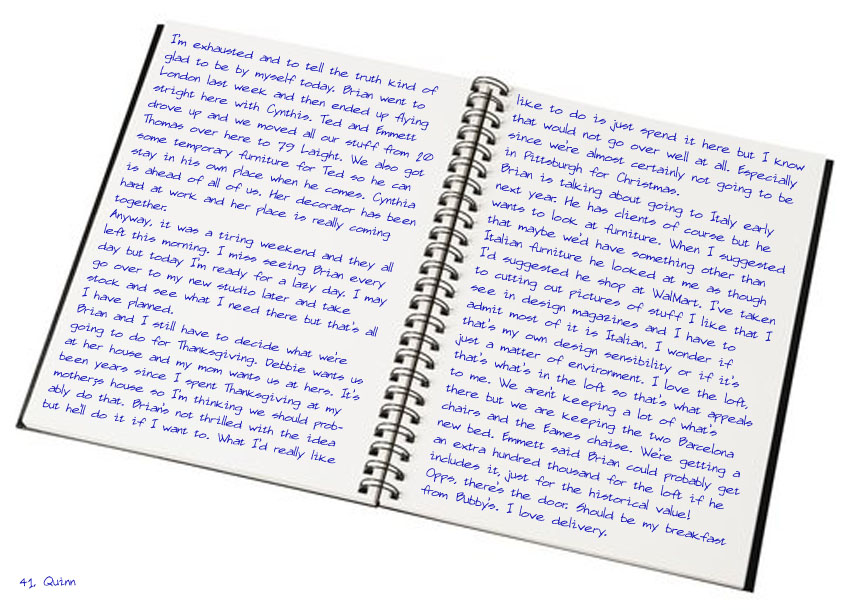 I'm exhausted and to tell the truth kind of
glad to be by myself today. Brian went to
London last week and then ended up flying
stright here with Cynthis. Ted and Emmett
drove up and we moved all our stuff from 20
Thomas over here to 79 Laight. We also got
some temporary furniture for Ted so he can
stay in his own place when he comes. Cynthia
is ahead of all of us. Her decorator has been
hard at work and her place is really coming
together.
Anyway, it was a tiring weekend and they all
left this morning. I miss seeing Brian every
day but today I'm ready for a lazy day. I may
go over to my new studio later and take
stock and see what I need there but that's all
I have planned.
Brian and I still have to decide what we're
going to do for Thanksgiving. Debbie wants us
at her house and my mom wants us at hers. It's
been years since I spent Thanksgiving at my
mother;s house so I'm thinking we should prob-
ably do that. Brian's not thrilled with the idea
but he'll do it if I want to. What I'd really like
like to do is just spend it here but I know
that would not go over well at all. Especially
since we're almost certainly not going to be
in Pittsburgh for Christmas.
Brian is talking about going to Italy early
next year. He has clients of course but he
wants to look at furniture. When I suggested
that maybe we'd have something other than
Italian furniture he looked at me as though
I'd suggested he shop at WalMart. I've taken
to cutting out pictures of stuff I like that I
see in design magazines and I have to
admit most of it is Italian. I wonder if
that's my own design sensibility or if it's
just a matter of environment. I love the loft,
that's what's in the loft so that's what appeals
to me. We aren't keeping a lot of what's
there but we are keeping the two Barcelona
chairs and the Eames chaise. We're getting a
new bed. Emmett said Brian could probably get
an extra hundred thousand for the loft if he
includes it, just for the historical value!
Opps, there's the door. Should be my breakfast
from Bubby's. I love delivery.
41. Quinn